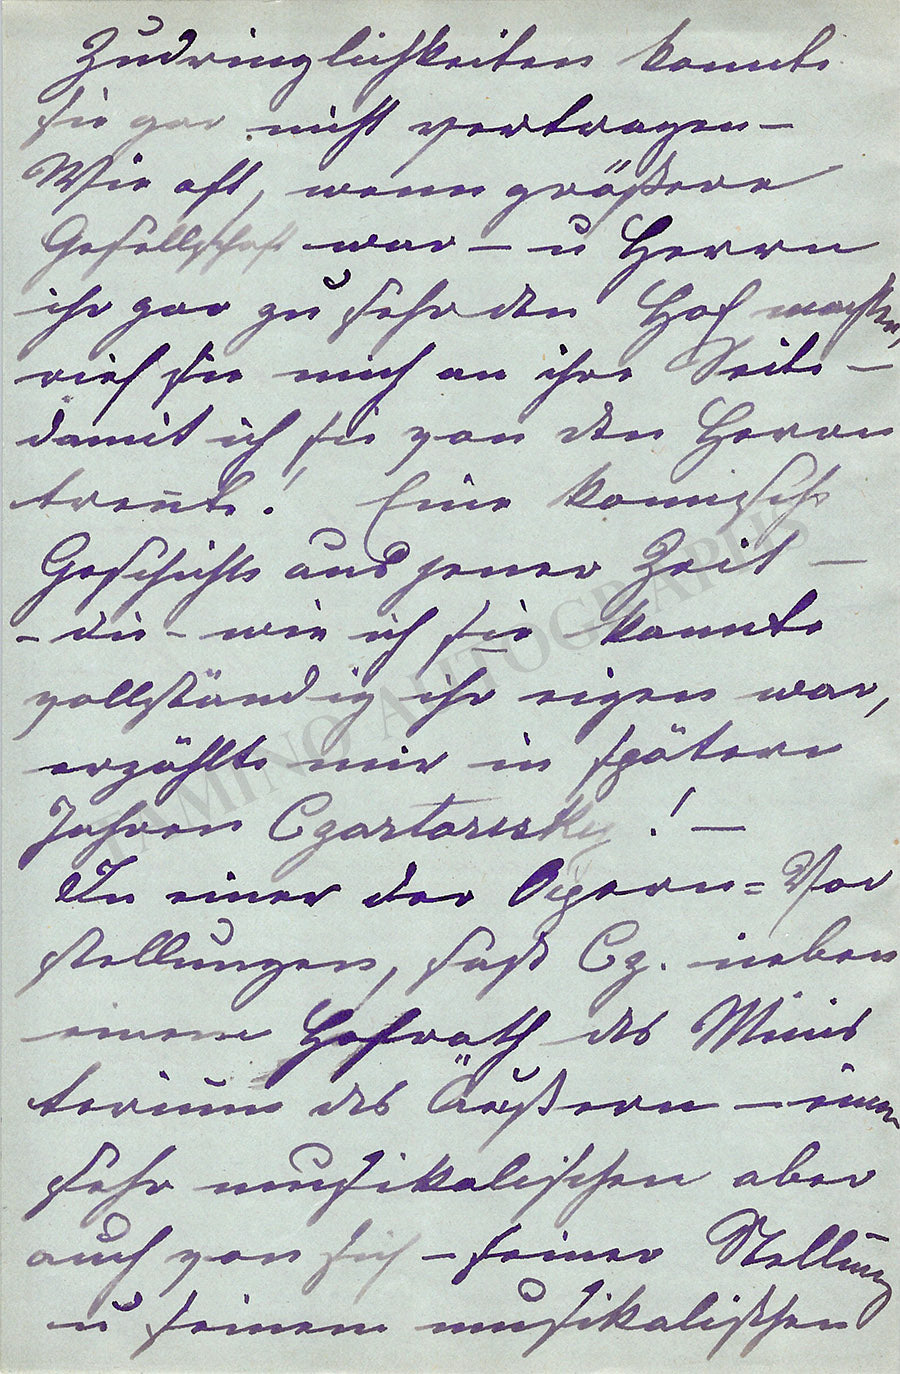 Zudringlichkeiten konnte
sie gar nicht vertragen –
Wie oft, wenn größere
Gesellschaft war – u Herrn
ihr gar zu sehr den Hof machten,
rief sie mich an ihre Seite –
damit ich sie von den Herrn
treñte! Eine komische
Geschichte aus jener Zeit –
– die – wie ich sie kannte
vollständig ihr eigen war,
erzählte mir in spätern
Jahren Czartoriski ! –
In einer der Opern= Vor
stellungen, saß Cz. neben
einem Hofrath des Minis
terium des Äußern – einen
sehr musikalischen aber
auch von sich – seiner Stellung
u seinem musikalischen
TAMINO AUTOGRAPHS